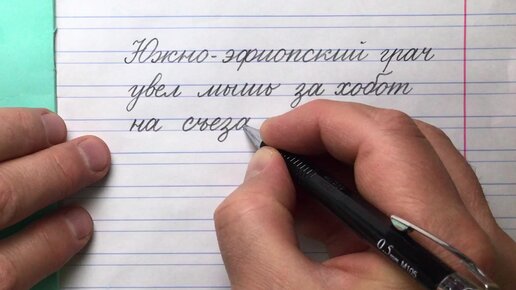 Южно-эфиопский грач
увел мышь за хобот
на съезд
0.5mm M105